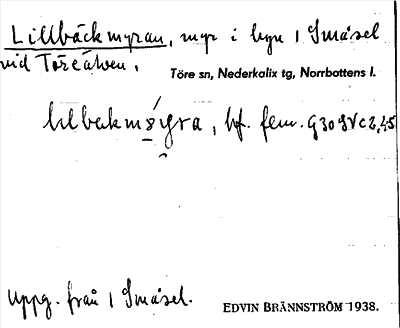 Lillbäckmyran, myr i byn 1 Småsel
vid Töreälven.
Töre sn, Nederkalix tg, Norrbottens l.
bf. fem.
Uppg. från 1 Småsel.
EDVIN BRÄNNSTRÖM 1938.